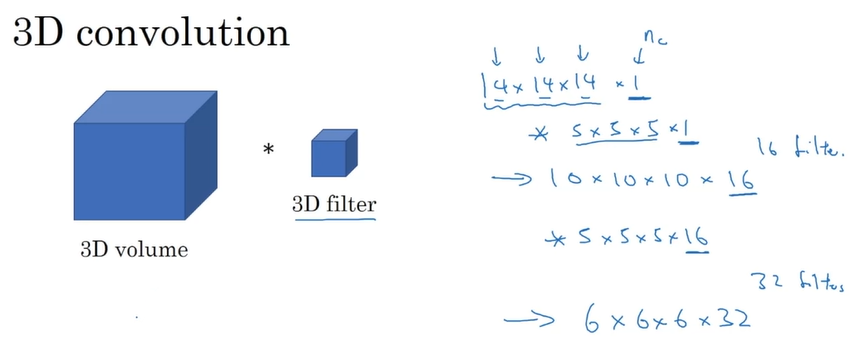 3D convolution
*
3D filter
3D volume
n_c
↓ ↓ ↓ ↓
14 × 14 × 14 × 1
* 5 × 5 × 5 × 1
16 filte.
→ 10 × 10 × 10 × 16
* 5 × 5 × 5 × 16
32 filters
→ 6 × 6 × 6 × 32